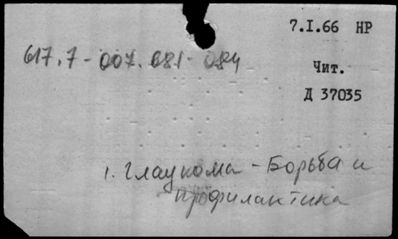 7.I.66 НР
617.7-007.681-084
Чит.
Д 37035
1. Глаукома - Борьба и
профилактика